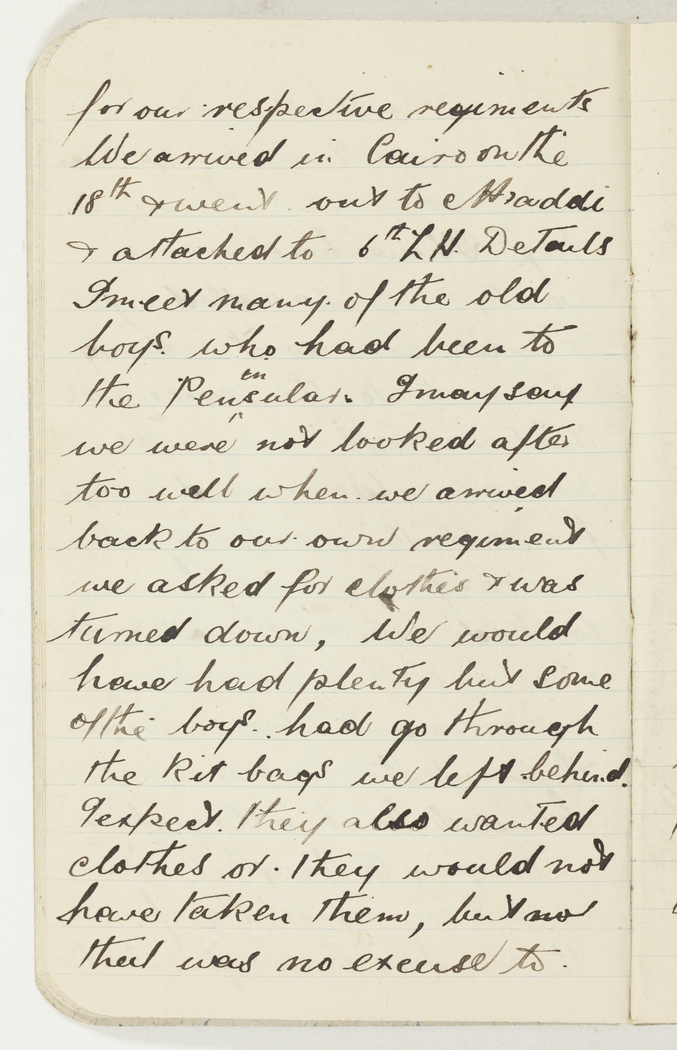 for our respective regiments
We arrived in Cairo on the
18th & went out to Maaddi
& attached to 6th L H. Details
I meet many of the old
boys. who had been to
the Peninsular. I may say
we were not looked after
too well when we arrived
back to our own regiment
we asked for clothes & was
turned down, We would
have had plenty but some
of the boys. had go through
the kit bags we left behind.
I expect. they also wanted
clothes or. they would not
have taken them, but not
that was no excuse to.